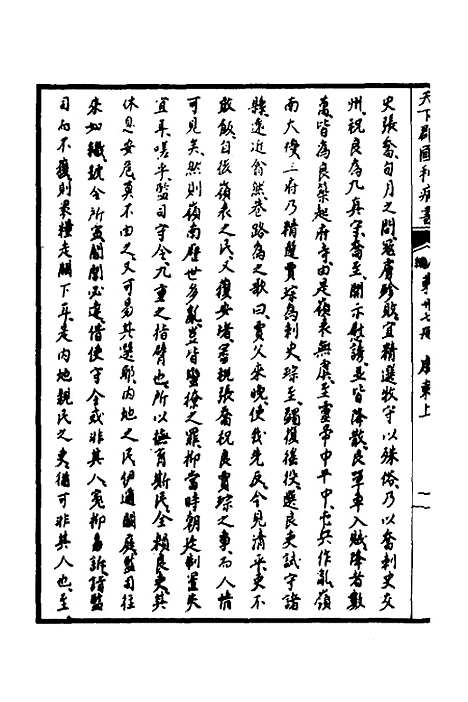 天下郡國利病書 編 第廿七冊 廣東上
史張喬旬月之間寇虜殄敗宜精選牧守以殊俗乃以喬刺史交
州祝良為九真守喬至開示慰誘並皆降散良單車入賊降者數
萬皆為良築起府寺由是嶺表無虞至靈帝中平中屯兵作亂嶺
南大優三府乃精選賈琮為刺史琮至蠲復徭役選良吏試守諸
縣遠近翕然巷路為之歌曰賈父來晚使我先反今見清平吏不
敢飯自後嶺表之民又復安堵喬祝張喬祝良賈琮之事而人情
可見矣然則嶺南歷世多亂豈皆蠻獠之罪抑當時朝廷制置失
宜耳嗟乎監司守令九重之指臂也所以撫育斯民全賴良吏其
休息安危莫不由之又可易其選耶內地之民仍通關庭監司往
來如織號令所宣閭閻必達借使守令或非其人冤抑易訴諸監
司而不獲則裹糧走闕下耳是內地親民之吏猶可非其人也至